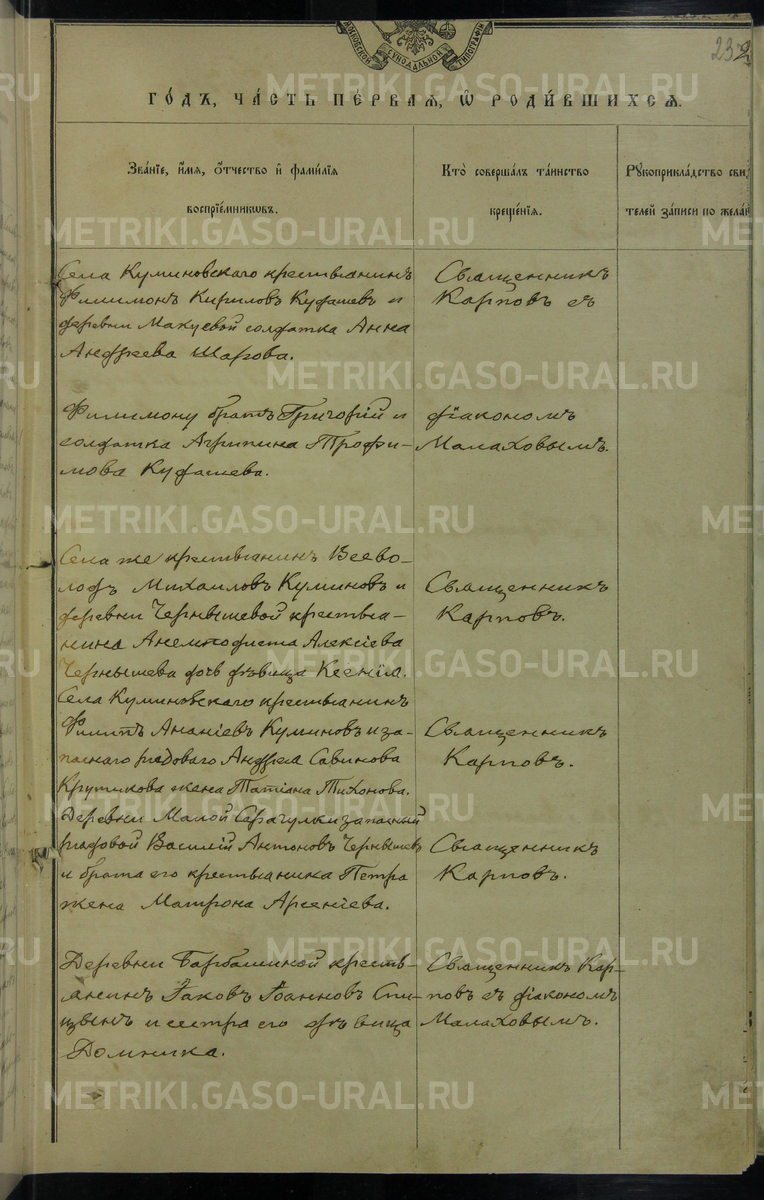 МОСКОВСКОЙ СѴНОДАЛЬНОЙ ТИПОГРАФІИ
232
ГО́ДЪ, ЧА́СТЬ ПЕ́РВАЯ, Ѡ҆ РОДИ́ВШИХСЯ.
Зва́нїе, и҆́мя, ѻ҆́тчество и҆ фами́лїя
воспрїе́мникѡвъ.
Кто̀ соверша́лъ та́инство
креще́нїя.
Рꙋкоприкла́дство свид
телей за́писи по жела́н
Села Куминовскаго крестьянинъ
Филимонъ Кириловъ Куфаевъ и
деревни Макуевой солдатка Анна
Андреева Шарова.
Священникъ
Карповъ съ
Филимону братъ Григорій и
солдатка Агрипина Трофи-
мова Куфаева.
діакономъ
Малаховымъ.
Села же крестьянинъ Всево-
лодъ Михаиловъ Куминовъ и
деревни Чернышевой крестья-
нина Анемподиста Алексіева
Чернышева дочь дѣвица Ксенія.
Священникъ
Карповъ.
Села Куминовскаго крестьянинъ
Филипъ Ананіевъ Куминовъ и за-
паснаго рядоваго Андрея Савинова
Крутикова жена Татіана Тихонова.
Священникъ
Карповъ.
Деревни Малой Сарачулки запасный
рядовой Василій Антоновъ Чернышевъ
и брата его крестьянина Петра
жена Матрона Арсеніева.
Священникъ
Карповъ.
Деревни Барбашиной кресть-
янинъ Іаковъ Іоанновъ Спи-
цынъ и сестра его дѣвица
Домника.
Священникъ Кар-
повъ съ діакономъ
Малаховымъ.
METRIKI.GASO-URAL.RU